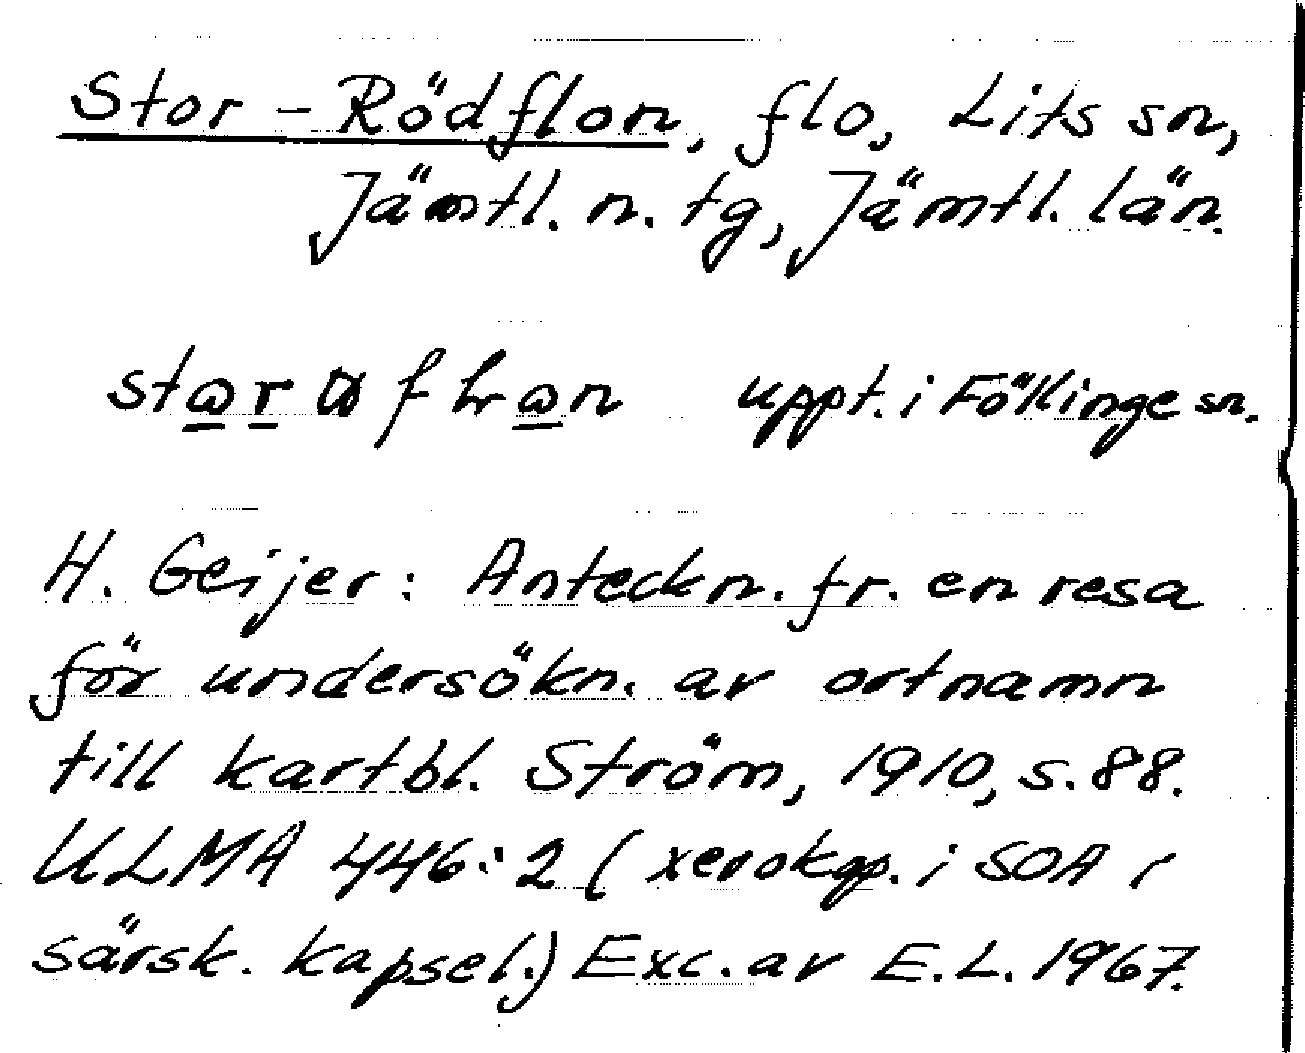 Stor-Rödflon, flo, Lits sn,
Jämtl. n. tg, Jämtl. län.
uppt. i Föllinge sn.
H. Geijer: Anteckn. fr. en resa
för undersökn. av ortnamn
till kartbl. Ström, 1910, s. 88.
ULMA 446:2 (xerokop. i SOA i
särsk. kapsel.) Exc. av E.L. 1967.